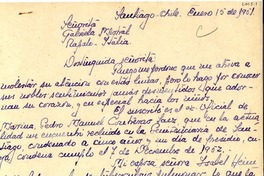 Santiago-Chile. Enero 15 de 1951
Señorita
Gabriela Mistral
Rapallo-Italia.
Distinguida señorita:
Ruégole perdone que me atreva a
molestar su atención con estas líneas, pero lo hago por conocer
sus nobles sentimientos, amén de virtudes que ador-
nan su corazón, y en especial hacia los niños.
El suscrito es ex Oficial de
Marina, Pedro Manuel Contreras Sáez, que en la actua-
lidad me encuentro recluido en la Penitenciaría de San-
tiago, condenado a cinco años, y un día de presidio, cu-
ya condena cumplo el de Noviembre de 1952.
Mi esposa, señora Isabel